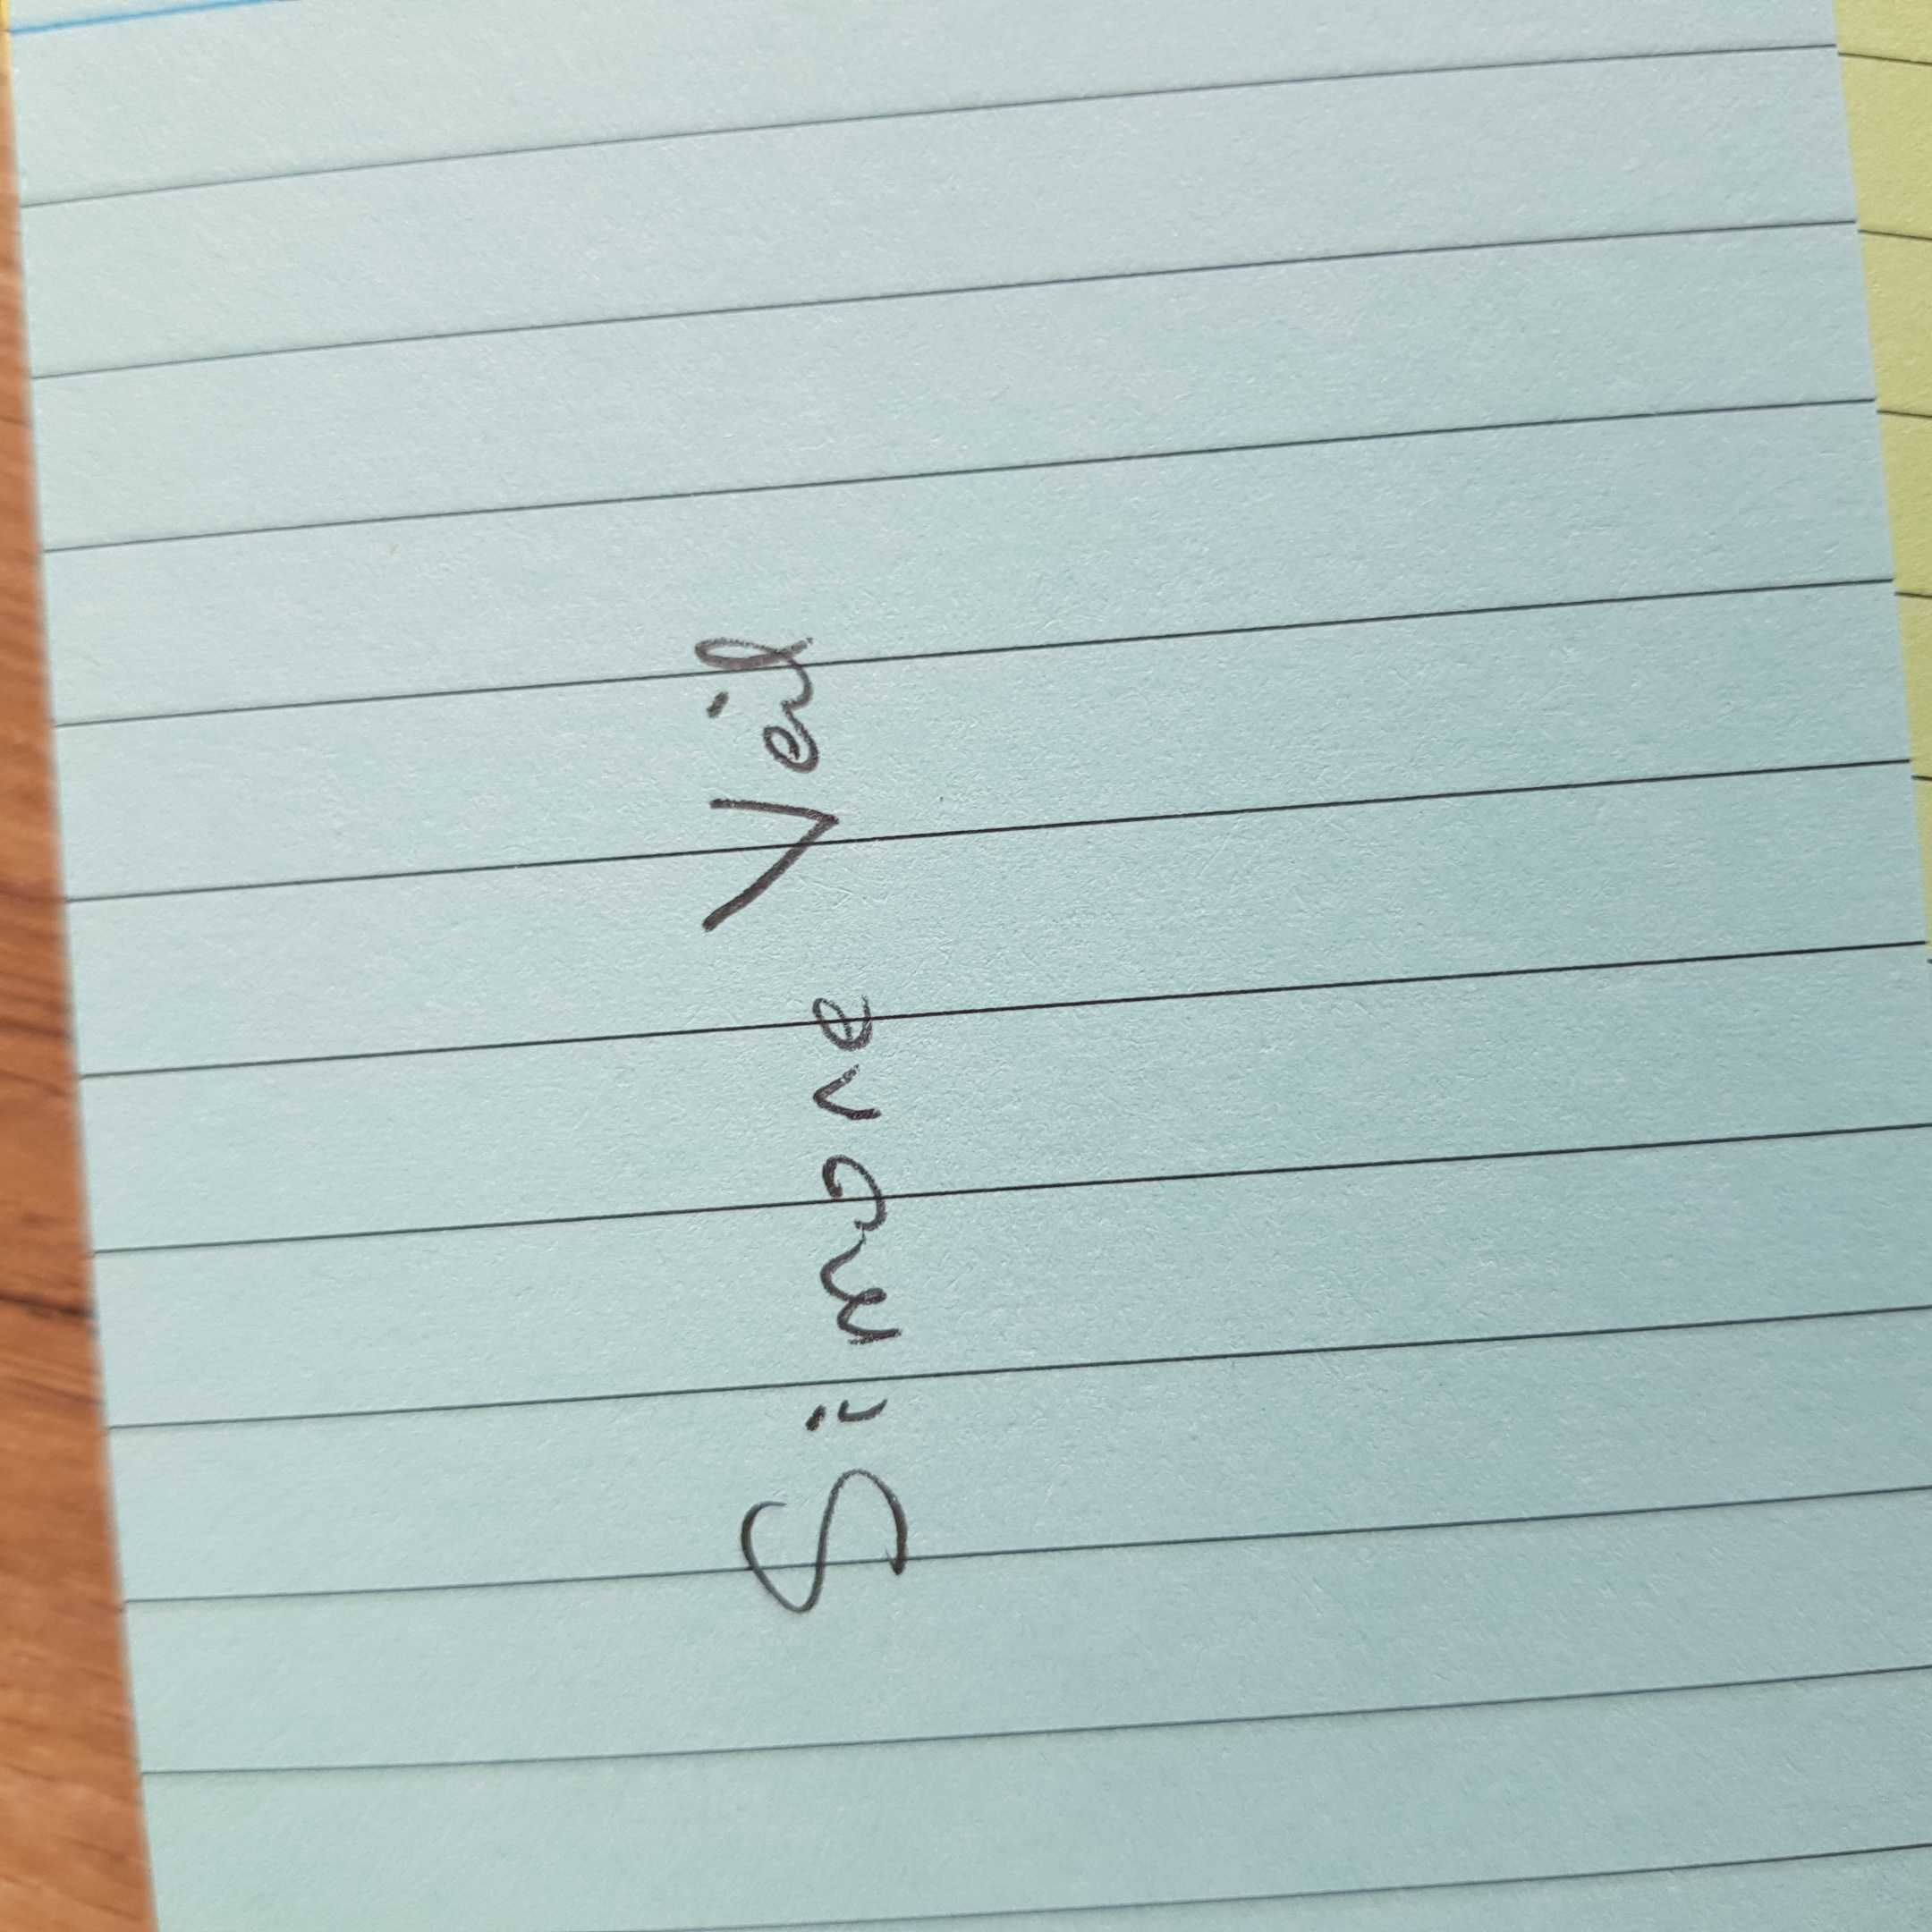 Simone Veil